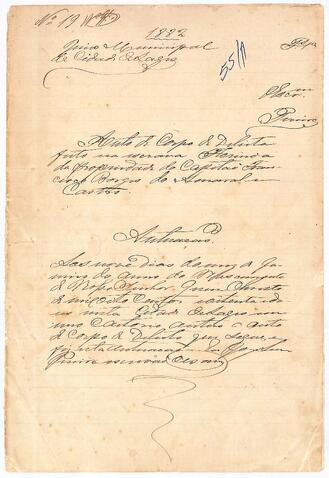 Nº 19
1882
Juizo Municipal
da Cidade de Lages
55/1
Escr.am
Pereira
Auto de Corpo de Delicto
feito na escrava
da propriedade do Capitão Fran-
cisco Borges do Amaral e
Castro
Autuacao
Aos nove dias do mez de Ja-
neiro do anno do Nascimento
de Nosso Senhor Jesus Christo
de mil oito centos oitenta e dois
nesta Cidade de Lages em
meu Cartorio autuo o auto
de Corpo de Delicto que segue, e
fiz esta autuacao
escrivão